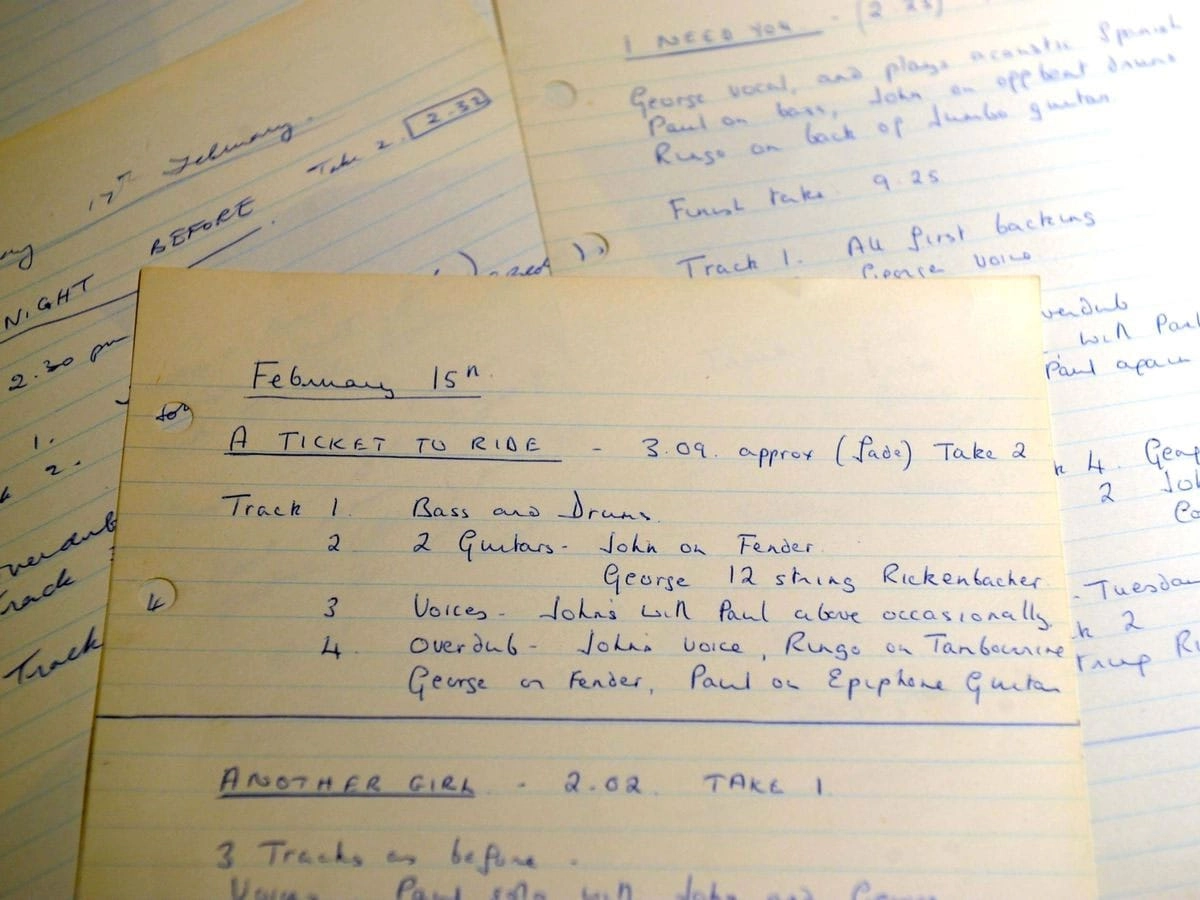 17th February.
NIGHT BEFORE Take 2. 2.32
2.30 pm
1.
2.
Overdub
Track
Track
I NEED YOU - (2 25)
George vocal, and plays acoustic Spanish
Paul on bass, John on offbeat drums
Ringo on back of Jumbo guitar
Finish take 9.25
Track 1. All first backing
George voice
overdub
with Paul
Paul again
4. Geo
2 Joh
Tuesday
2
February 15th.
A TICKET TO RIDE - 3.09. approx (fade) Take 2
Track 1. Bass and Drums.
2 2 Guitars - John on Fender.
George 12 string Rickenbacher
3 Voices - John's with Paul above occasionally
4 4. Overdub - John's voice, Ringo on Tambourine
George on Fender, Paul on Epiphone Guitar
ANOTHER GIRL - 2.02. TAKE 1
3 Tracks as before.
Voices Paul solo with John and George